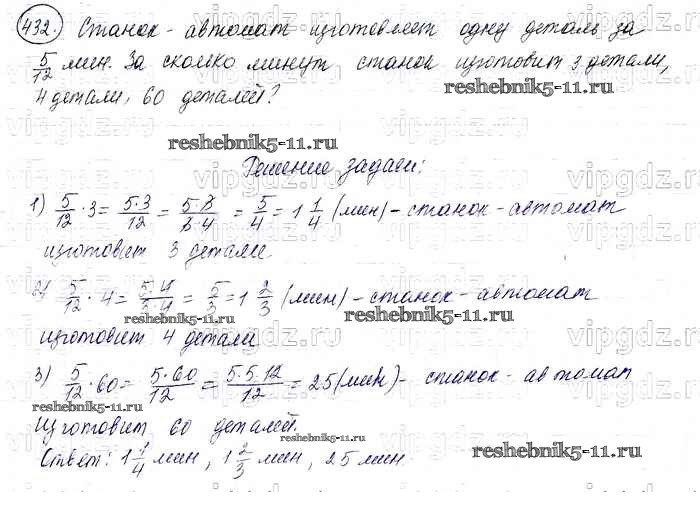 432. Станок-автомат изготовляет одну деталь за
5/12 мин. За сколко минут станок изготовит 3 детали,
4 детали, 60 деталей?
reshebnik5-11.ru
reshebnik5-11.ru
Решение задачи:
1) 5/12 · 3 = 5·3/12 = 5·3/3·4 = 5/4 = 1 1/4 (мин) - станок-автомат
изготовит 3 детали.
2) 5/12 · 4 = 5·4/3·4 = 5/3 = 1 2/3 (мин) - станок-автомат
reshebnik5-11.ru
reshebnik5-11.ru
изготовит 4 детали
3) 5/12 · 60 = 5·60/12 = 5·5·12/12 = 25 (мин) - станок-автомат
reshebnik5-11.ru
изготовит 60 деталей.
Ответ: 1 1/4 мин, 1 2/3 мин, 25 мин.
reshebnik5-11.ru
reshebnik5-11.ru
vipgdz.ru